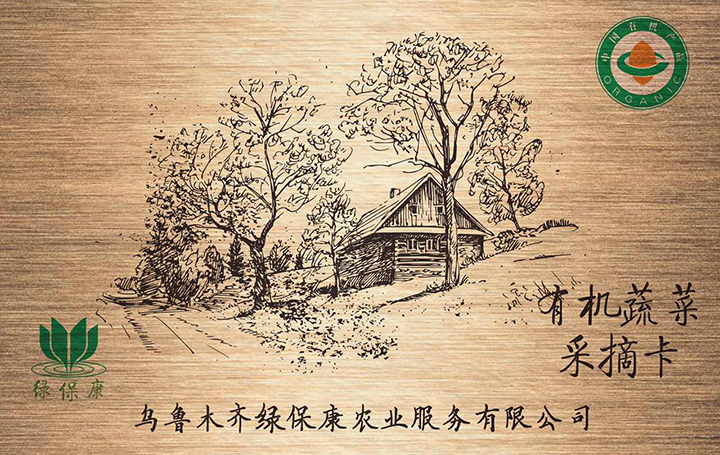 中国有机产品
ORGANIC
有机蔬菜
采摘卡
绿保康
乌鲁木齐绿保康农业服务有限公司